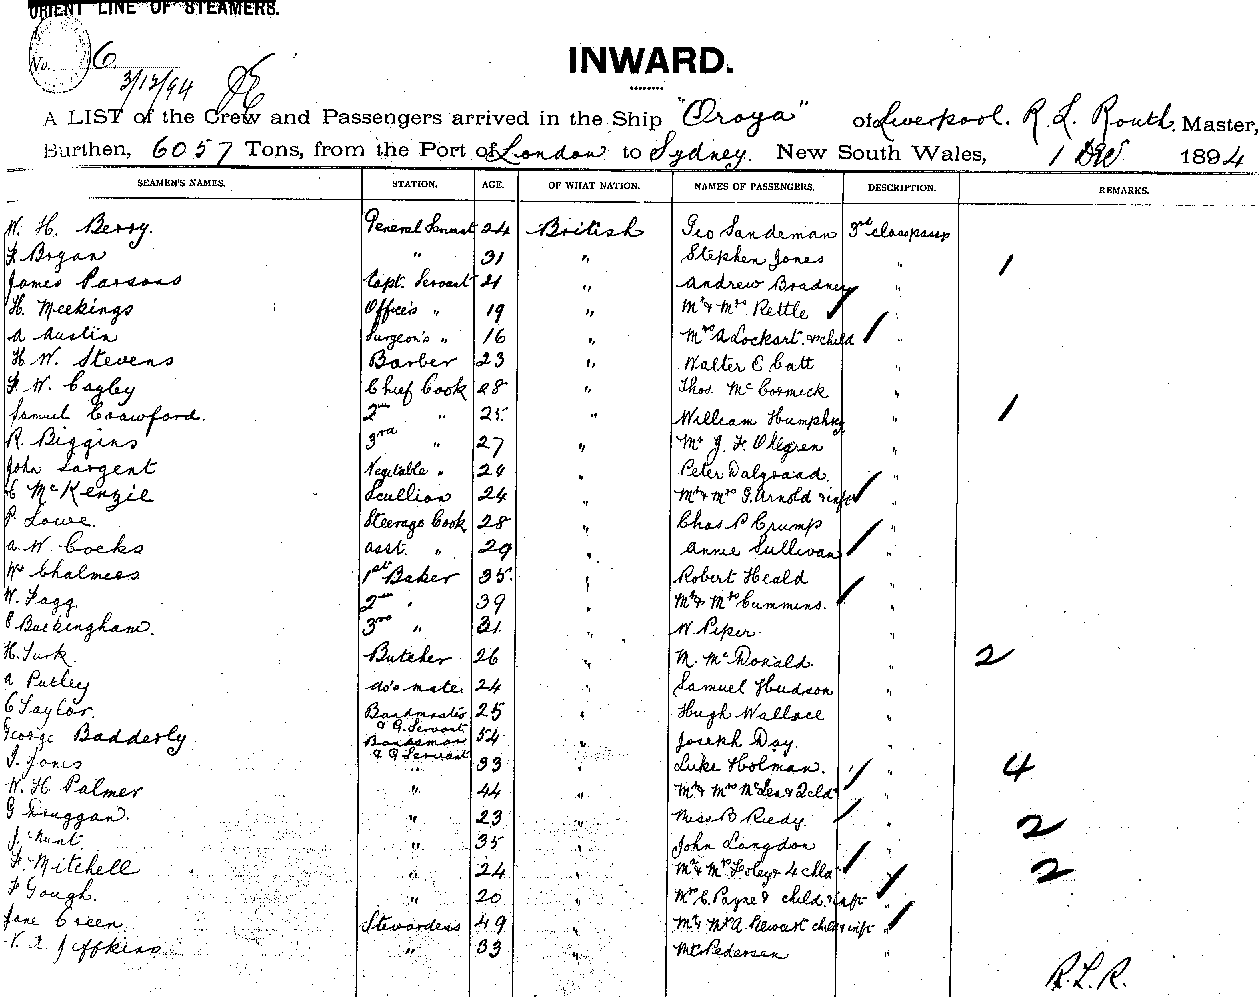 ORIENT LINE OF STEAMERS.
No. 6
3/12/94
INWARD.
A LIST of the Crew and Passengers arrived in the Ship "Oroya" of Liverpool. R. L. Routh, Master,
Burthen, 6057 Tons, from the Port of London to Sydney. New South Wales, 1 Dec 1894
SEAMEN'S NAMES. STATION. AGE. OF WHAT NATION. NAMES OF PASSENGERS. DESCRIPTION. REMARKS.
W. H. Berry. General Servant 24 British Geo Sandeman 3rd class pass
F. Bryan " 31 " Stephen Jones " 1
James Parsons Capt. Servant 21 " Andrew Bradney "
H. Meekings Officers " 19 " Mr & Mrs Rettle "
A Austin Surgeon's " 16 " Mrs A Lockart. & child "
H. W. Stevens Barber 23 " Walter E Catt "
F. W. Cagley Chief Cook 28 " Thos. McCormick "
Samuel Crawford. 2nd " 25 " William Humphrey " 1
R. Biggins 3rd " 27 " Mr J. F. Ohlgren "
John Sargent Vegetable " 24 " Peter Dalgraad "
C McKenzie Scullion 24 " Mr & Mrs G. Arnold & inft "
P. Lowe. Steerage Cook 28 " Chas P Crump "
A. W. Cocks asst. " 29 " Annie Sullivan "
Wm Chalmers 1st Baker 35 " Robert Heald "
W. Fagg 2nd " 39 " Mr & Mrs Cummins. "
Buckingham. 3rd " 31 " W Piper "
H. Turk Butcher 26 " M. McDonald " 2
A Putley do's mate 24 " Samuel Hudson "
C Taylor Bandmaster & G. Servant 25 " Hugh Wallace "
George Badderly Bandsman & G Servant 54 " Joseph Day "
J. Jones " 33 " Luke Holman. " 4
W. H Palmer " 44 " Mr & Mrs McLea & 2 cld "
G Druggan. " 23 " Miss B Reedy " 2
J. Hunt " 35 " John Langdon "
F. Mitchell " 24 " Mr & Mrs Foley & 4 chld " 2
F Gough. " 20 " Mrs C. Payne & child & inft "
Jane Green Stewardess 49 " Mr & Mrs A. Stewart child & inft "
Jeffkins " 33 " Mr C Pedersen "
R.L.R.